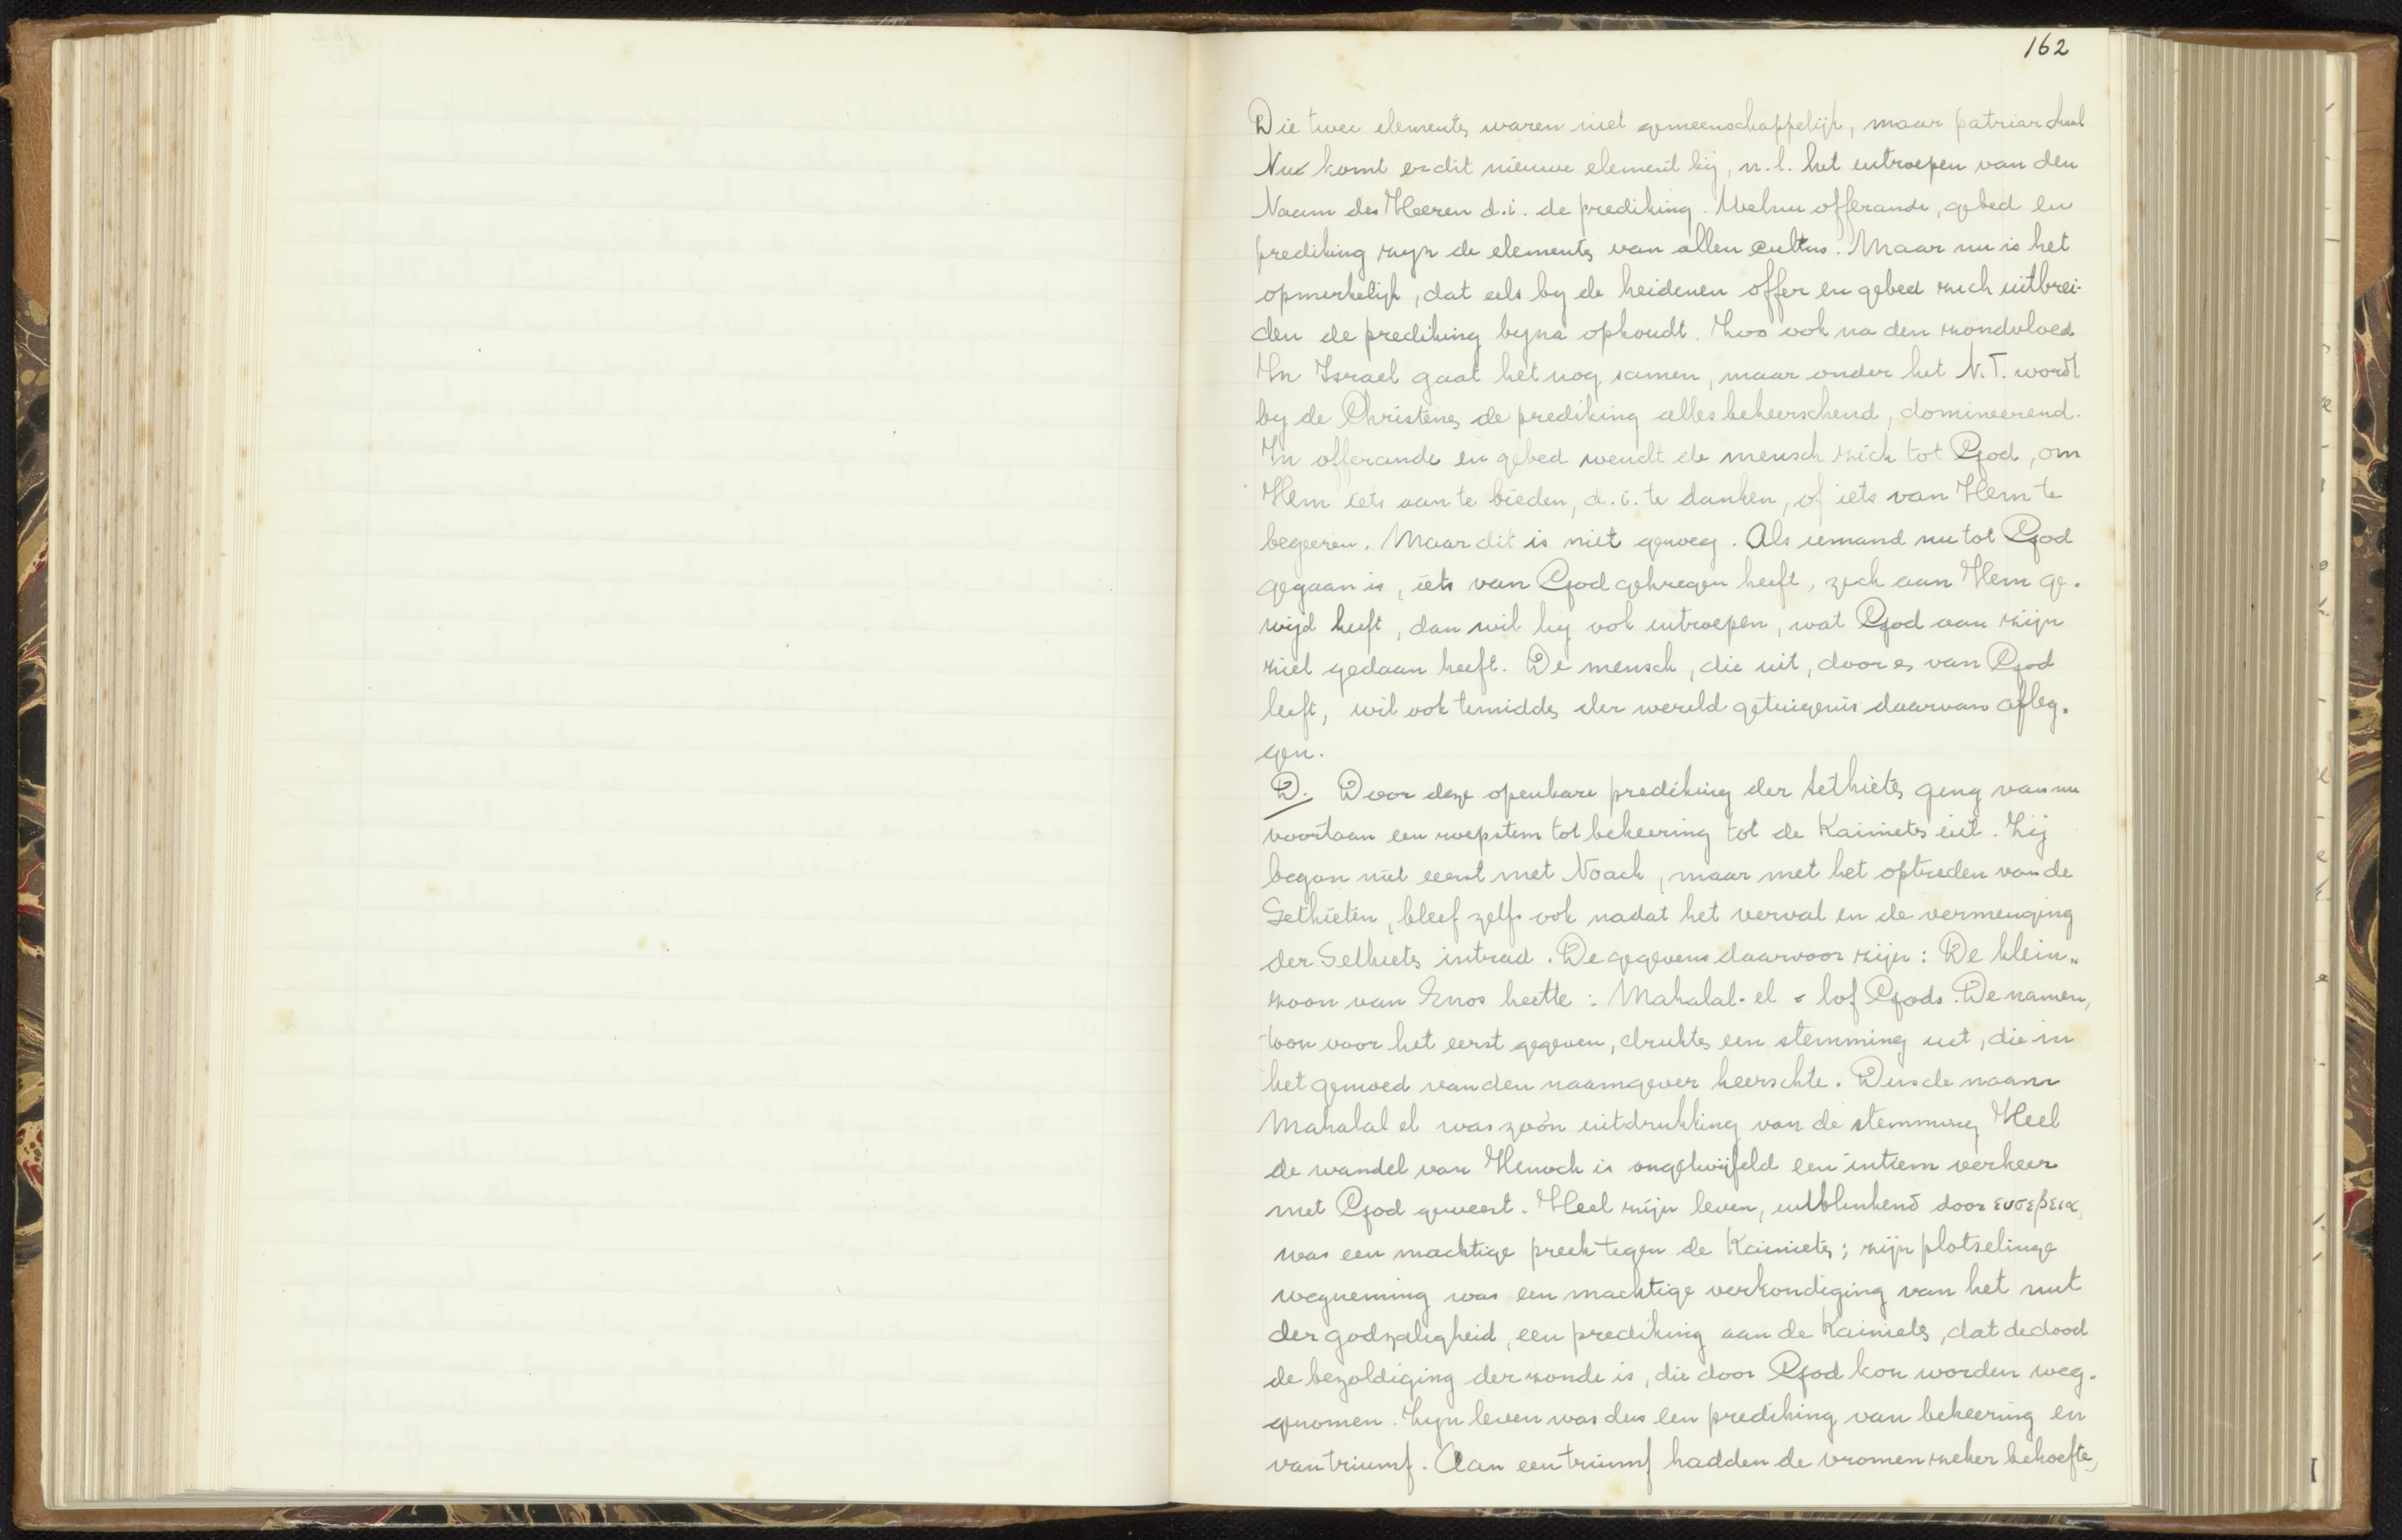 162
Die twee elementen waren niet gemeenschappelijk, maar patriarchaal
Nu komt er dit nieuwe element bij, n.l. het uitroepen van den
Naam des Heeren d.i. de prediking. Welnu offerande, gebed en
prediking zijn de elementen van allen cultus. Maar nu is het
opmerkelijk, dat als by de heidenen offer en gebed zich uitbrei-
den de prediking byna ophoudt. Zoo ook na den zondvloed
In Israel gaat het nog samen, maar onder het N.T. wordt
by de Christenen de prediking alles beheerschend, domineerend.
In offerande en gebed wendt de mensch zich tot God, om
Hem iets aan te bieden, d.i. te danken, of iets van Hem te
begeeren. Maar dit is niet genoeg. Als iemand nu tot God
gegaan is, iets van God gekregen heeft, zich aan Hem ge-
wijd heeft, dan wil hij ook uitroepen, wat God aan zijn
ziel gedaan heeft. De mensch, die uit, door en van God
leeft, wil ook temidden der wereld getuigenis daarvan afleg-
gen.
D. Door deze openbare prediking der Sethieten ging van nu
voortaan een roepstem tot bekeering tot de Kainieten uit. Zij
began niet eerst met Noach, maar met het optreden van de
Sethieten, bleef zelfs ook nadat het verval en de vermenging
der Sethieten intrad. De gegevens daarvoor zijn: De klein-
zoon van Enos heette: Mahalal-el = lof Gods. De namen,
toen voor het eerst gegeven, drukten een stemming uit, die in
het gemoed van den naamgever heerschte. Dus de naam
Mahalal el was zoo'n uitdrukking van de stemming Heel
de wandel van Henoch is ongetwijfeld een intiem verkeer
met God geweest. Heel zijn leven, uitblinkend door ευσεβεια,
was een machtige preek tegen de Kainieten; zijn plotselinge
wegneming was een machtige verkondiging van het nut
der godzaligheid, een prediking aan de Kainieten, dat de dood
de bezoldiging der zonde is, die door God kon worden weg-
genomen. Zijn leven was dus een prediking van bekeering en
van triumf. Aan een triumf hadden de vromen zeker behoefte,